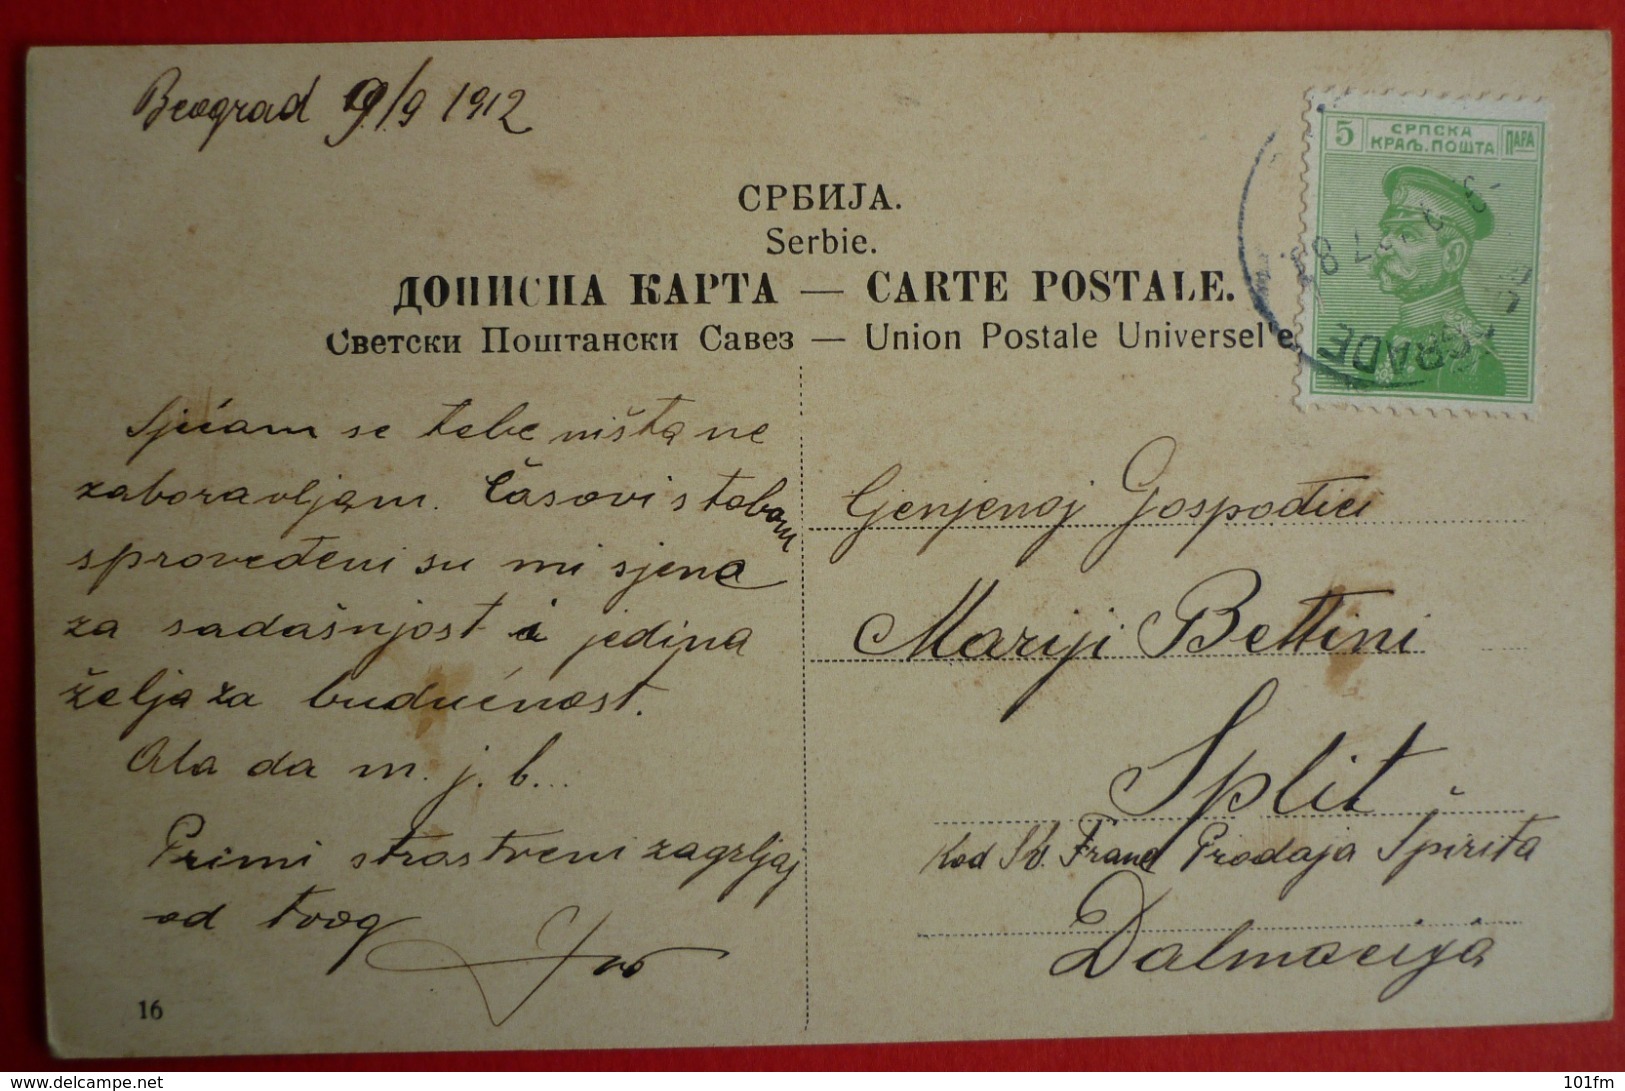 Beograd 9/9 1912
СРБИЈА.
Serbie.
ДОПИСНА КАРТА — CARTE POSTALE.
Светски Поштански Савез — Union Postale Universel'e
5 СРПСКА ПАРА
КРАЉ. ПОШТА
Sjećam se tebe ništa ne
zaboravljam. Časovi s tobom
sprovedeni su mi sjena
za sadašnjost i jedina
želja za budućnost.
Ala da m. j. b...
Primi strastveni zagrljaj
od tvog
Ivo
16
Cjenjenoj Gospođici
Mariji Bettini
Split
Kod Sv. Frane Prodaja Špirita
Dalmacija
delcampe.net
101fm